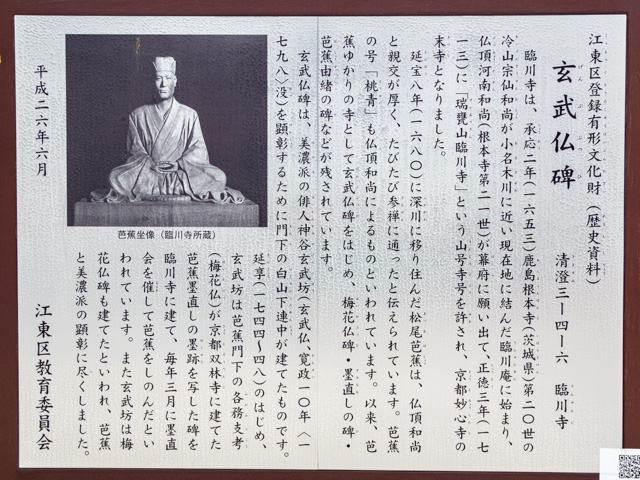 江東区登録有形文化財（歴史資料）
げんぶぶつひ
玄武仏碑
清澄三－四－六　臨川寺
臨川寺は、承応二年（一六五三）鹿島根本寺（茨城県）第二〇世の
冷山宗仙和尚が小名木川に近い現在地に結んだ臨川庵に始まり、
仏頂河南和尚（根本寺第二一世）が幕府に願い出て、正徳三年（一七
一三）に「瑞甕山臨川寺」という山号寺号を許され、京都妙心寺の
末寺となりました。
延宝八年（一六八〇）に深川に移り住んだ松尾芭蕉は、仏頂和尚
と親交が厚く、たびたび参禅に通ったと伝えられています。芭蕉
の号「桃青」も仏頂和尚によるものといわれています。以来、芭
蕉ゆかりの寺として玄武仏碑をはじめ、梅花仏碑・墨直しの碑・
芭蕉由緒の碑などが残されています。
玄武仏碑は、美濃派の俳人神谷玄武坊（玄武仏、寛政一〇年〈一
七九八〉没）を顕彰するために門下の白山下連中が建てたものです。
延享（一七四四～四八）のはじめ、
玄武坊は芭蕉門下の各務支考
（梅花仏）が京都双林寺に建てた
芭蕉墨直しの墨跡を写した碑を
臨川寺に建て、毎年三月に墨直
会を催して芭蕉をしのんだとい
われています。また玄武坊は梅
花仏碑も建てたといわれ、芭蕉
と美濃派の顕彰に尽くしました。
芭蕉坐像（臨川寺所蔵）
平成二六年六月
江東区教育委員会